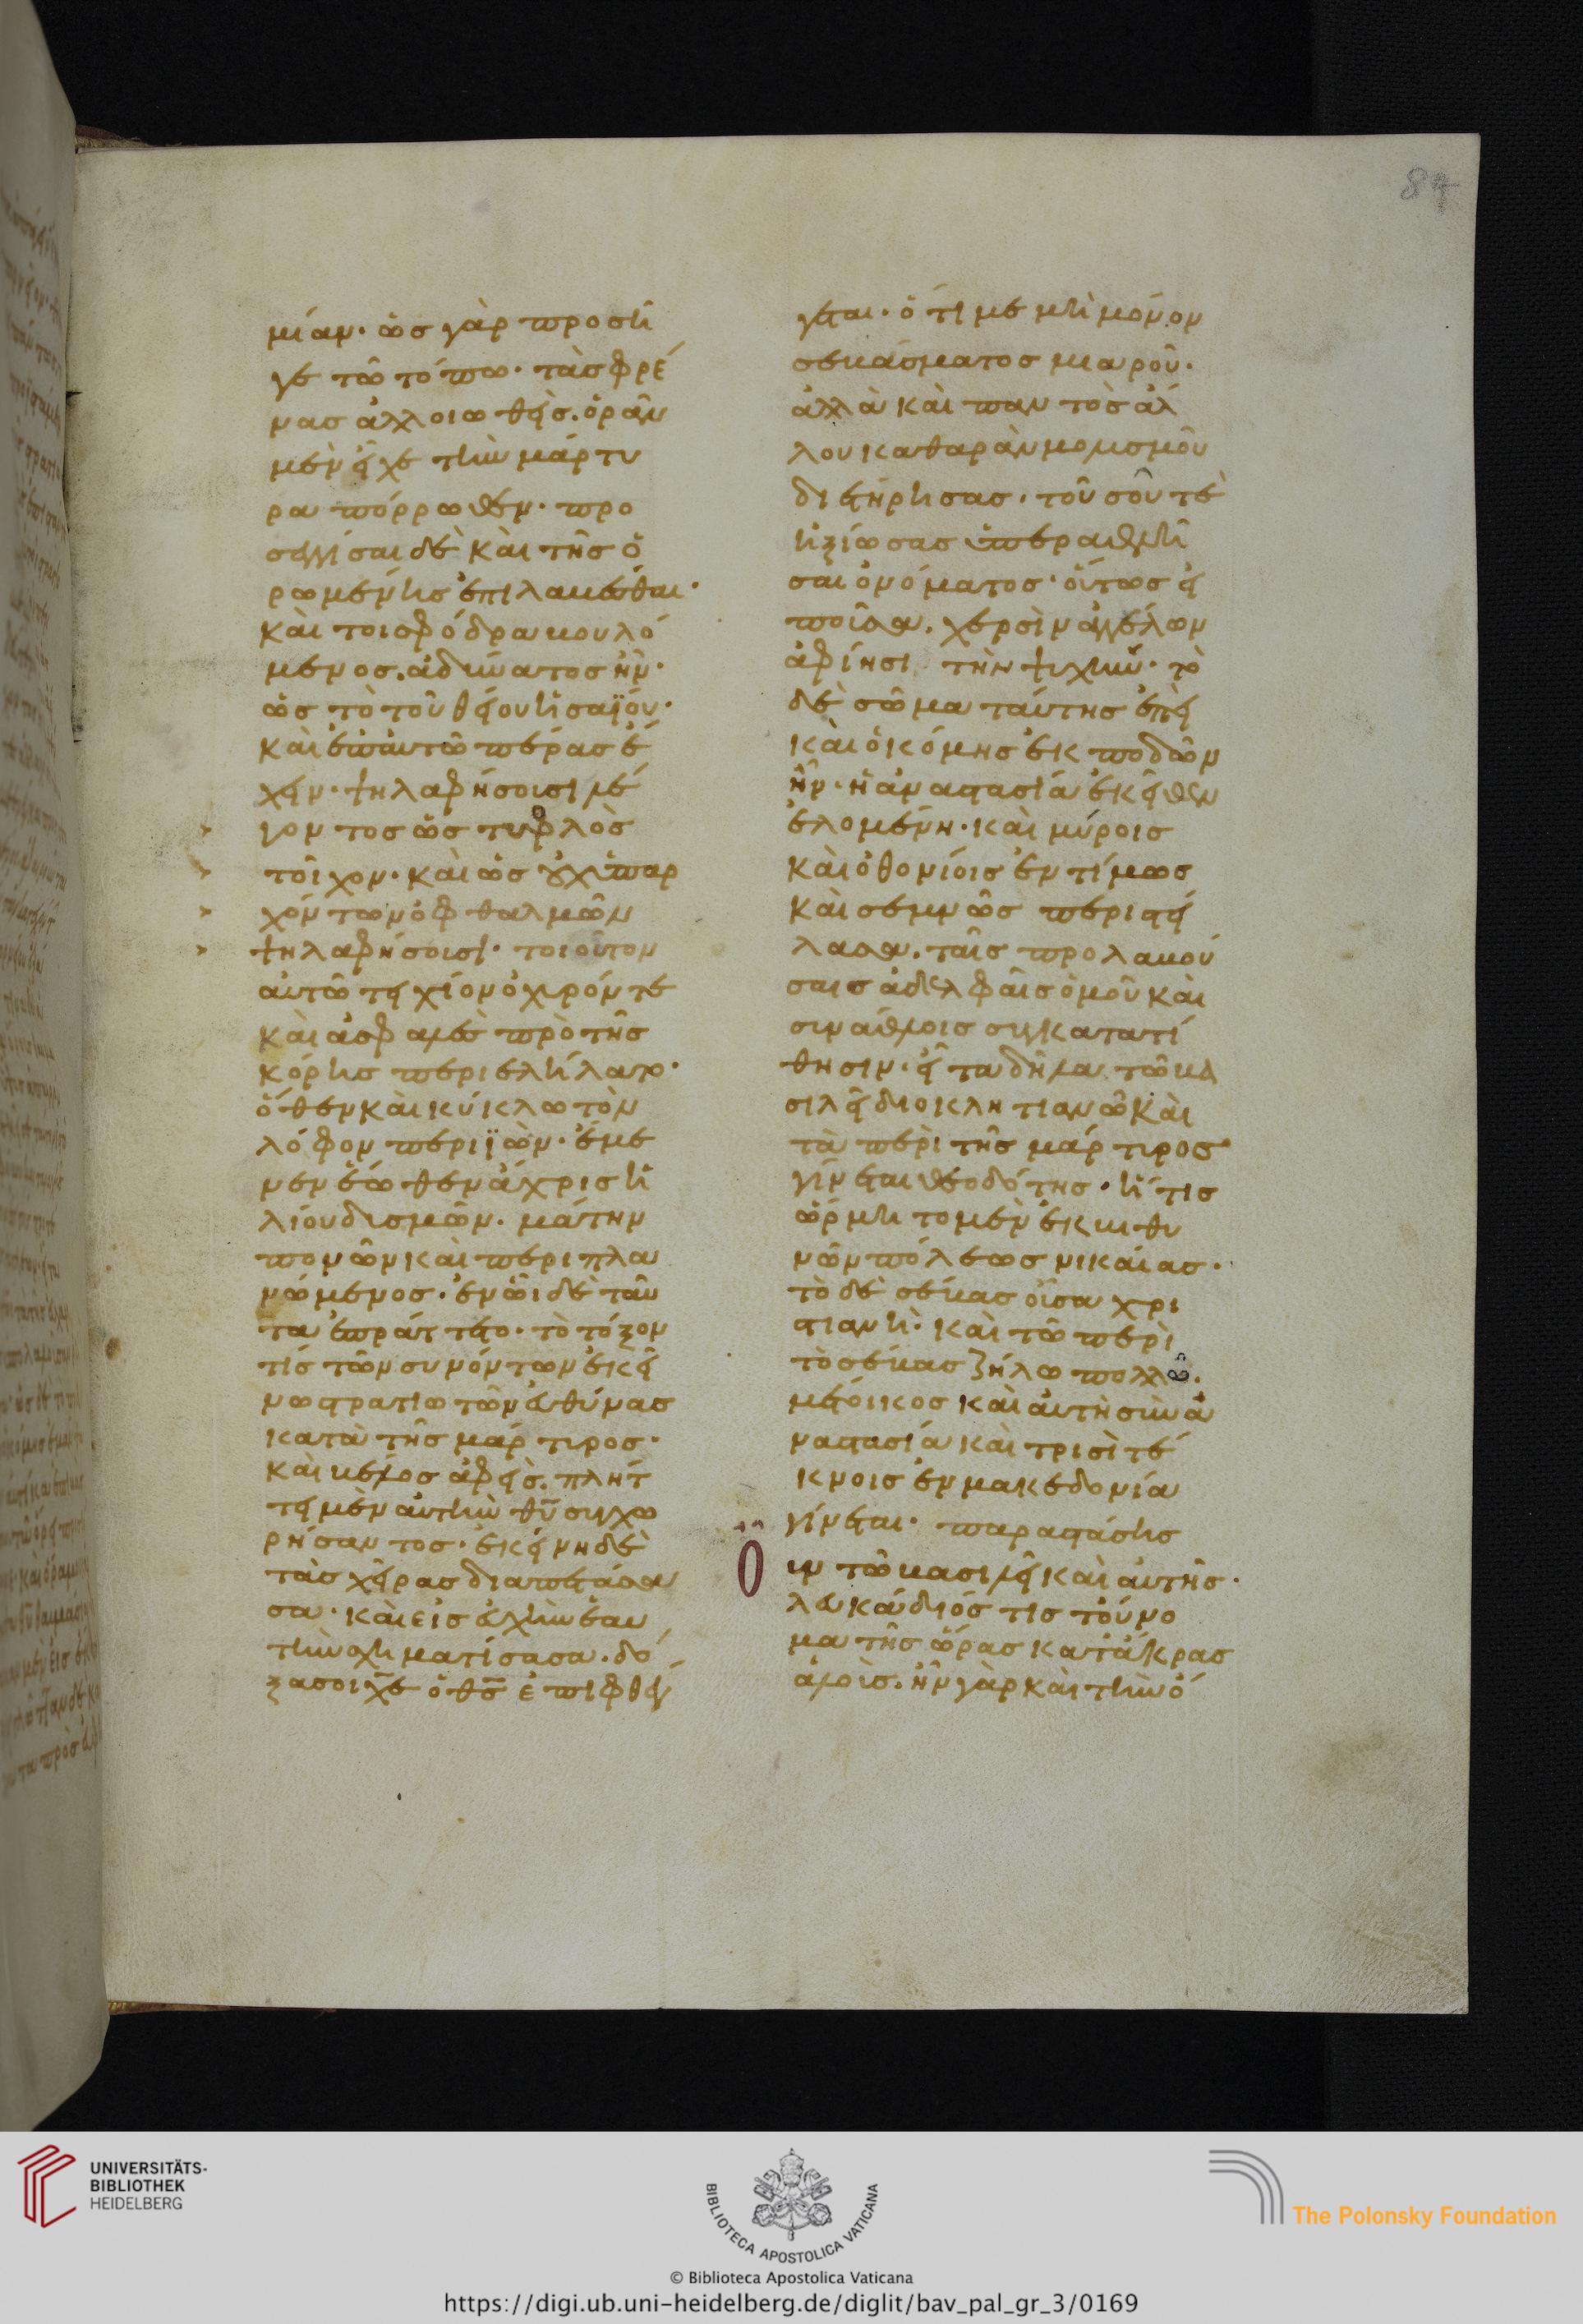 84
μίαν· ὡς γὰρ προσῆ
γε τῶ τόπω· τὰς φρέ
νας ἀλλοιωθεὶς. ὁρᾶν
μὲν εἶχε τὴν μάρτυ
ρα πόρρωθεν· προ
σεγγίσαι δὲ καὶ τῆς ὁ
ρωμένης ἐπιλαβέσθαι·
καίτοι σφόδρα βουλό
μενος. ἀδύνατος ἦν·
ὡς τὸ τοῦ θείου ἡσαΐου·
καὶ ἐπ αὐτῶ πέρας ἔ
χειν· ψηλαφήσουσι λέ
γοντος ὡς τυφλὸς
τοῖχον· καὶ ὡς οὐχ ὑπαρ
χόντων ὀφθαλμῶν
ψηλαφήσουσι· τοιοῦτον
αὐτῶ τειχίον ὀχυρόν τε
καὶ ἀσφαλὲς πρὸ τῆς
κόρης περιελήλατο·
ὅθεν καὶ κύκλω τὸν
λόφον περιϊὼν· ἔμε
νεν ἕωθεν ἄχρις ἡ
λίου δυσμῶν. μάτην
πονῶν καὶ περιπλα
νώμενος· ἐν ὧι δὲ ταῦ
τα ἐπράττετο· τὸ τόξον
τίς τῶν συνόντων ἐκεί
νω στρατιωτῶν εὐθύνας
κατὰ τῆς μάρτυρος·
καὶ βέλος ἀφεὶς. πλήτ
τει μὲν αὐτὴν θυ συγχω
ρήσαντος· ἐκείνη δὲ
τὰς χεῖρας διαπετάσα
σα· καὶ εἰς εὐχὴν ἑαυ
τὴν σχηματίσασα. δό
ξα σοι χε ὁ θς ἐπιφθέγ
γεται· ὅτι με μὴ μόνον
σεβάσματος μιαροῦ·
ἀλλὰ καὶ παντὸς ἄλ
λου καθαρὰν μολυσμοῦ
διετήρησας· τοῦ σοῦ τὲ
ἠξίωσας ὑπεραθλῆ
σαι ὀνόματος· οὕτως εἰ
ποῦσα. χερσὶν ἀγγέλων
ἀφίησι τὴν ψυχὴν· τὸ
δὲ σῶμα ταύτης ἐπεὶ
καὶ ὁ κόμης ἐκ ποδῶν
ἦν· ἡ ἀναστασία ἐκεῖθεν
ἑλομένη· καὶ μύροις
καὶ ὀθονίοις ἐντίμως
καὶ σεμνῶς περιστεί
λασα. ταῖς προλαβού
σαις ἀδελφαῖς ὁμοῦ καὶ
συνάθλοις συγκατατί
θησιν· εἶτα δῆλα τῶ βα
σιλεῖ διοκλητιανῶ καὶ
τὰ περὶ τῆς μάρτυρος
γίνεται θεοδότης· ἥτις
ὥρμητο μὲν ἐκ βιθυ
νῶν πόλεως νικαίας·
τὸ δὲ σέβας οὖσα χρι
στιανὴ· καὶ τῶ περὶ
τὸ σέβας ζήλω πολλῶ.
μέτοικος καὶ αὐτὴ σὺν ἀ
ναστασία καὶ τρισὶ τέ
κνοις ἐν μακεδονία
γίνεται· παραστάσης
οὖν τῶ βασιλεῖ καὶ αὐτῆς·
λευκάδιός τις τοὔνο
μα τῆς ὥρας κατάκρας
ἁλοὺς. ἦν γὰρ καὶ τὴν ὄ
UNIVERSITÄTS-
BIBLIOTHEK
HEIDELBERG
BIBLIOTECA APOSTOLICA VATICANA
The Polonsky Foundation
© Biblioteca Apostolica Vaticana
https://digi.ub.uni-heidelberg.de/diglit/bav_pal_gr_3/0169